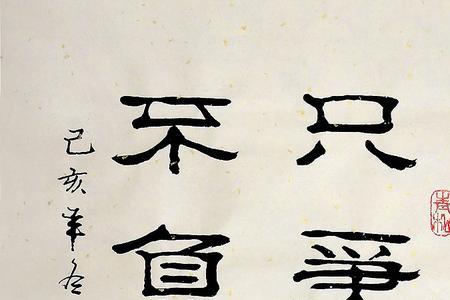 青松
只爭
不負
己亥年冬